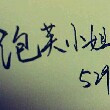 泡芙小姐
529